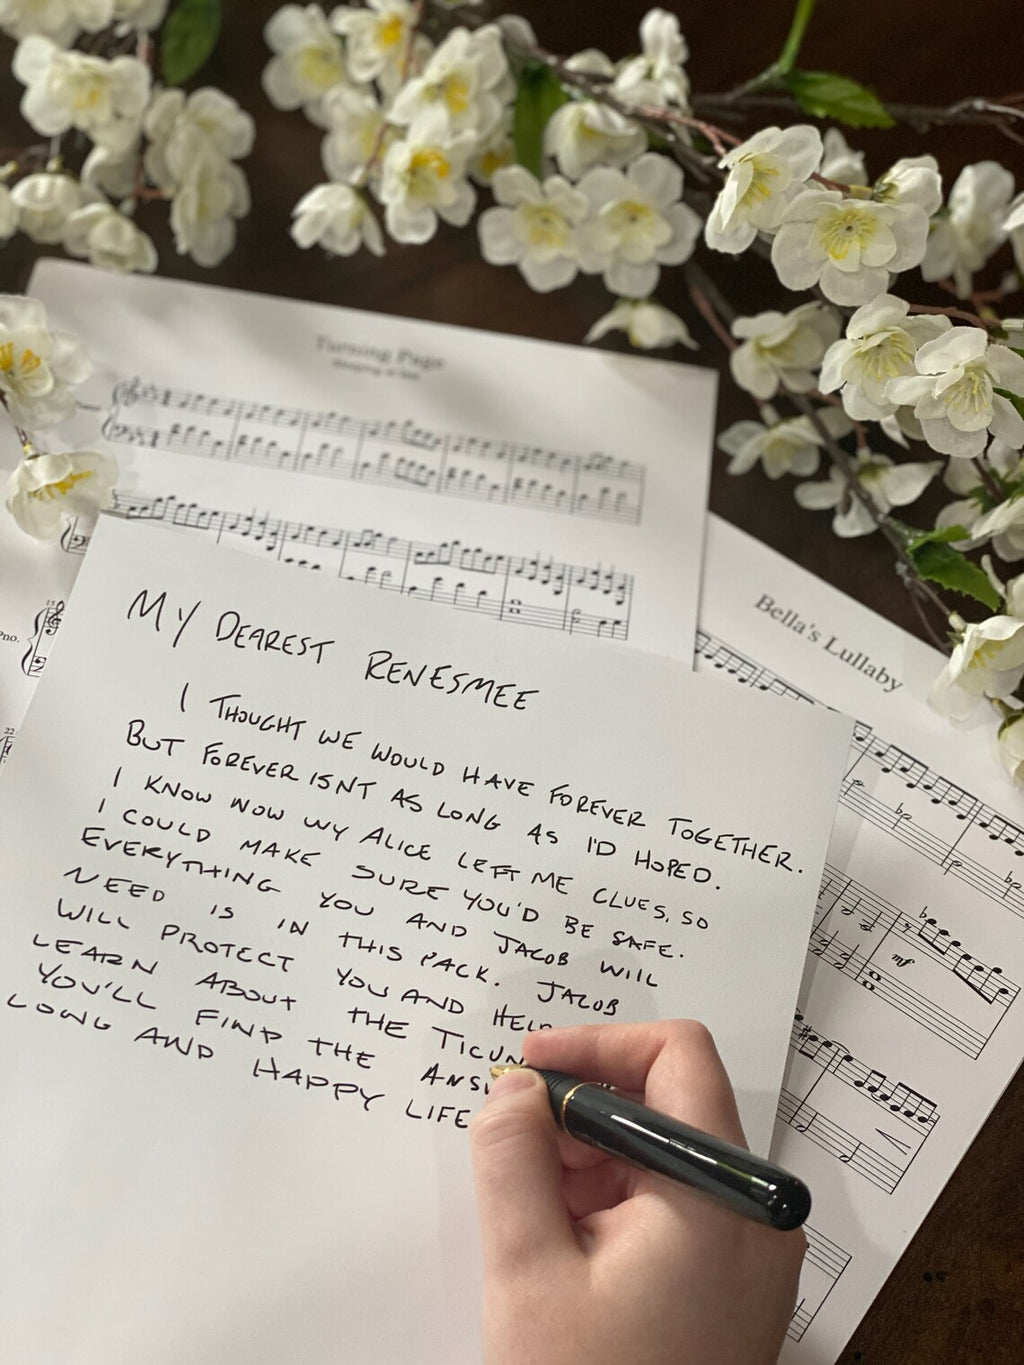 Turning Page
Sleeping at Last
Bella's Lullaby
mf
Pno.
15
22
MY DEAREST RENESMEE
I THOUGHT WE WOULD HAVE FOREVER TOGETHER.
BUT FOREVER ISNT AS LONG AS I'D HOPED.
I KNOW NOW WY ALICE LEFT ME CLUES, SO
I COULD MAKE SURE YOU'D BE SAFE.
EVERYTHING YOU AND JACOB WILL
NEED IS IN THIS PACK. JACOB
WILL PROTECT YOU AND HELP
LEARN ABOUT THE TICUN
YOU'LL FIND THE ANS
LONG AND HAPPY LIFE